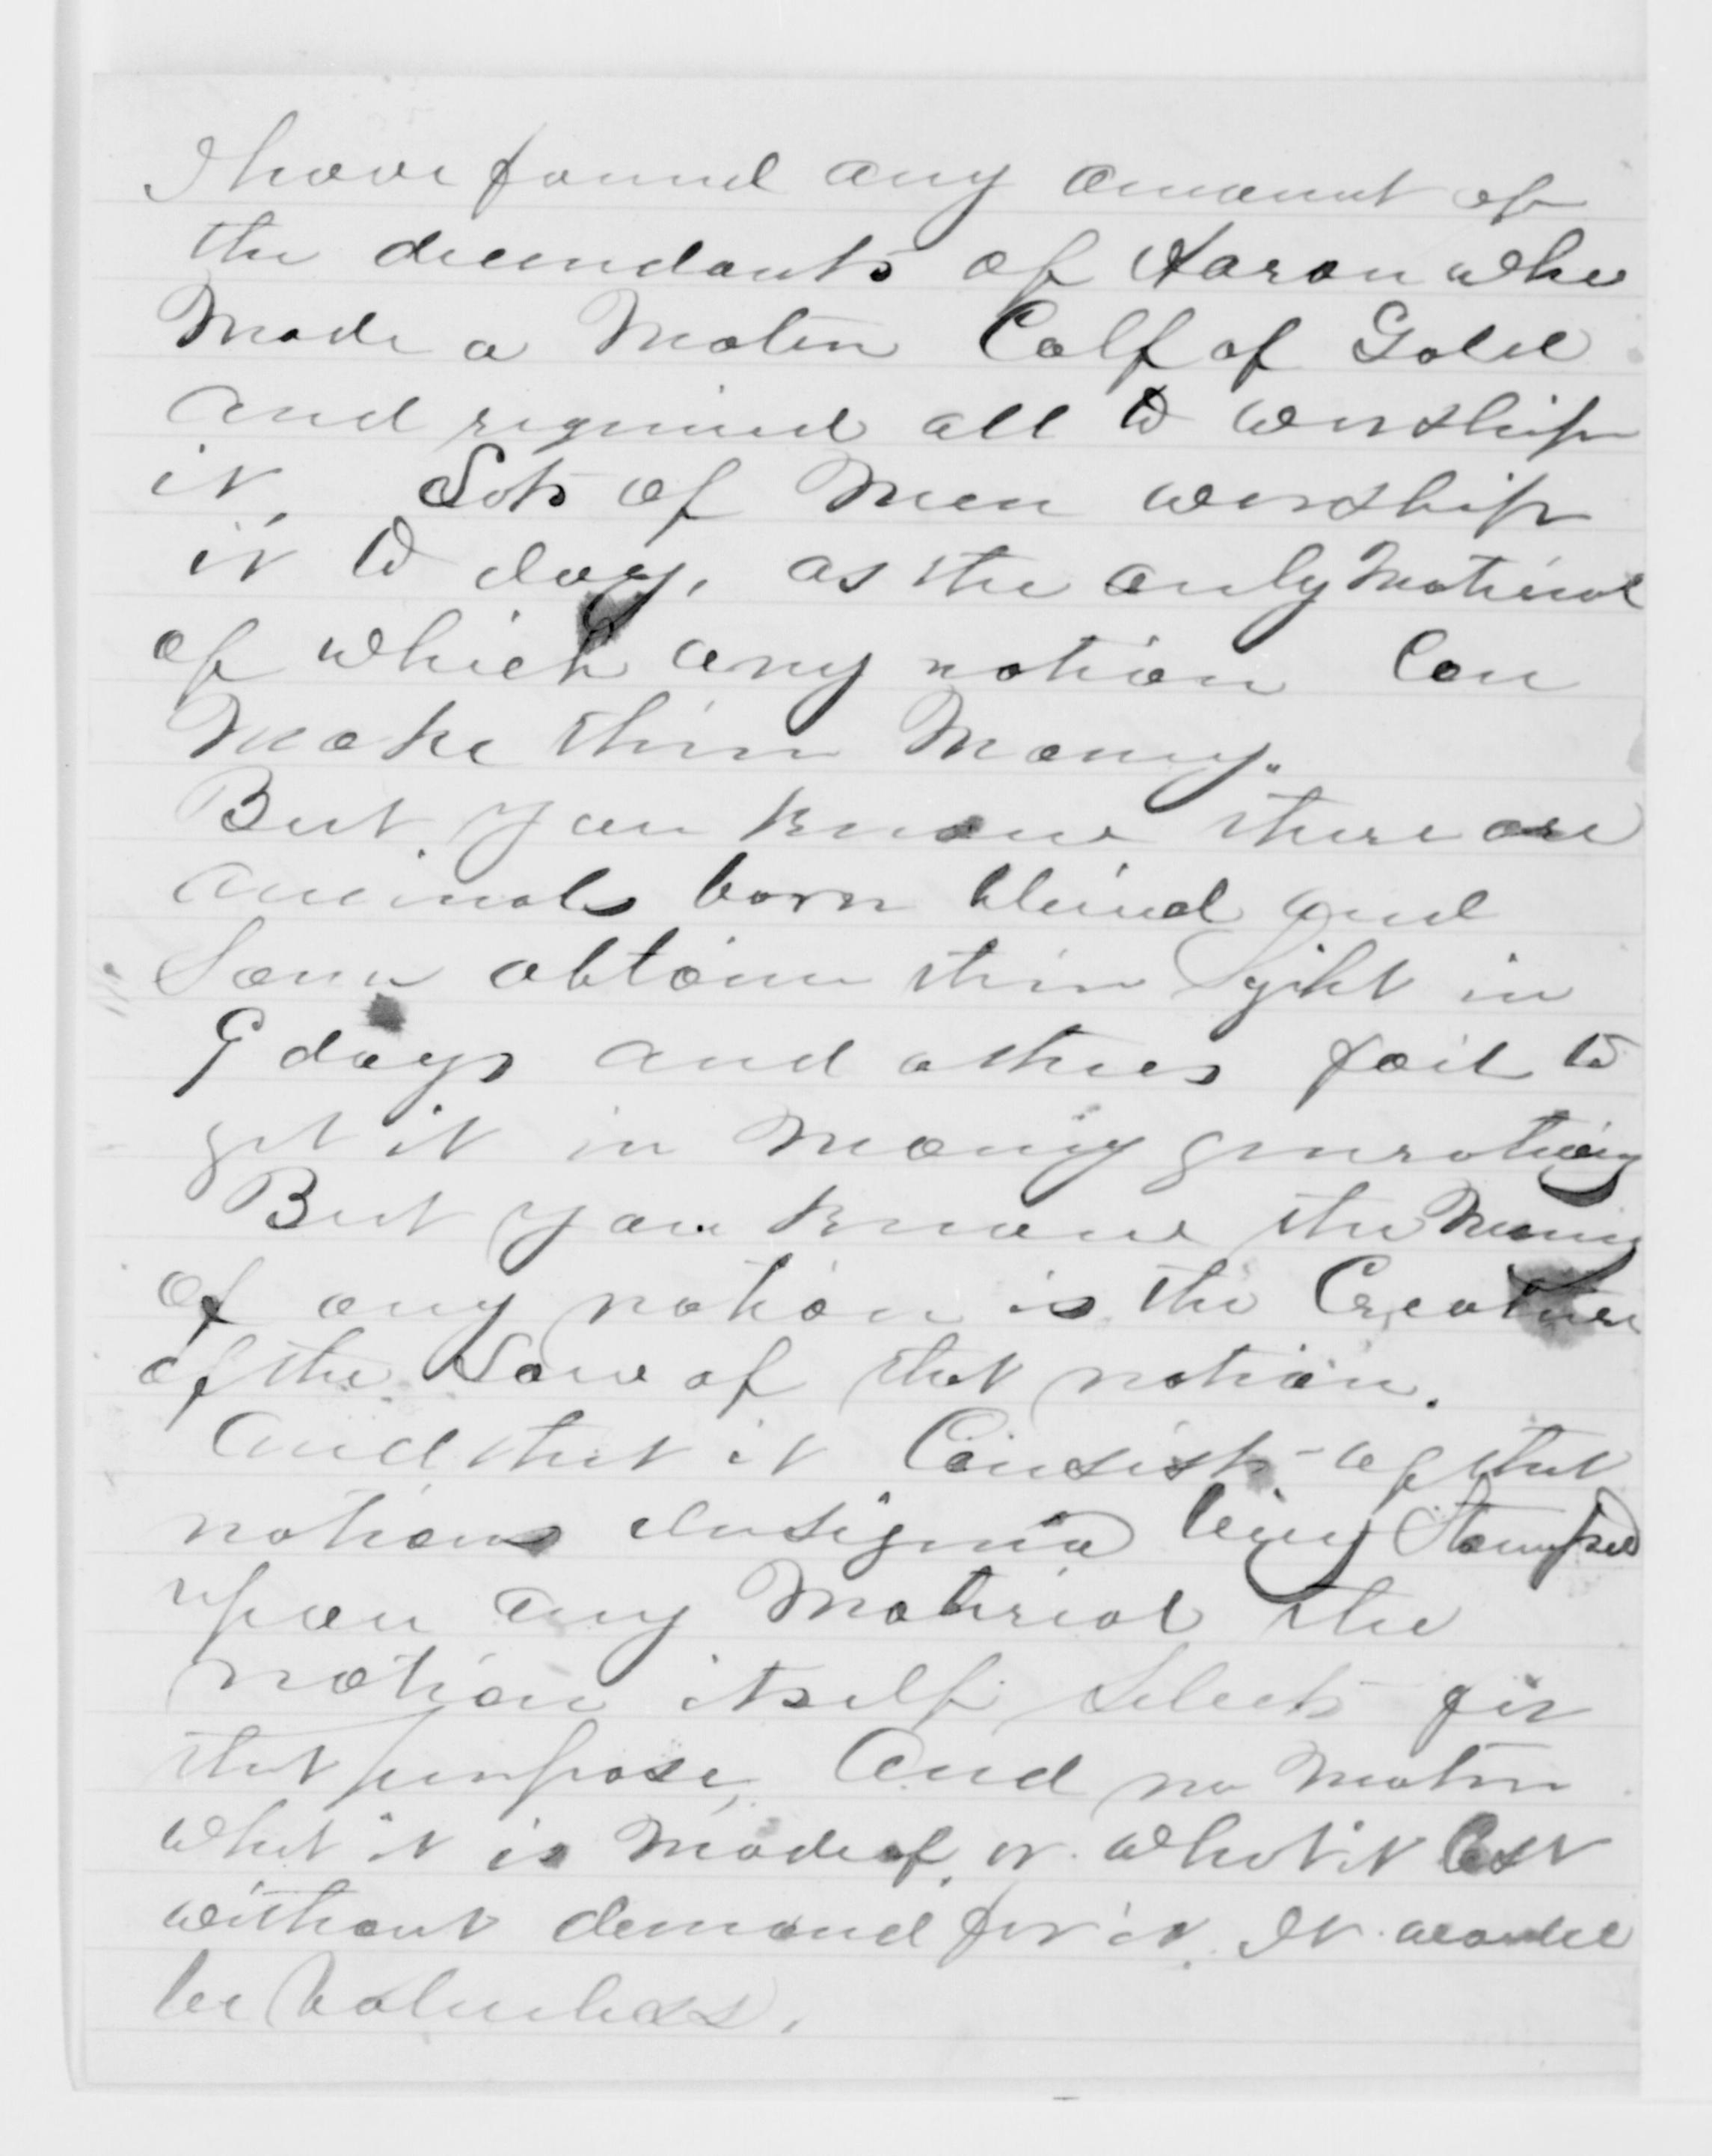 I have found any amount of
the decendants of Aaron who
Made a Molten Calf of Gold
and required all to worship
it, Lots of Men worship
it to day, as the only Material
of which any nation Can
Make their Money.
But you know there are
animals born blind and
Some obtain their Sight in
9 days and others fail to
get it in many generations
But you know the Money
of any nation is the Creature
of the Law of that nation.
And that it Consists of that
nations Insignia being Stamped
upon any Material the
nation itself Selects for
that purpose, And no matter
what it is Made of, or what it Cost
without demand for it, It would
be Valueless.